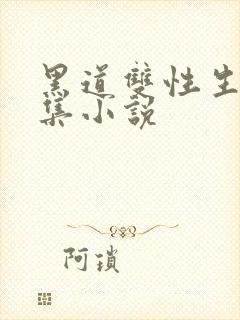 黑道雙性生
集小說
阿瑣